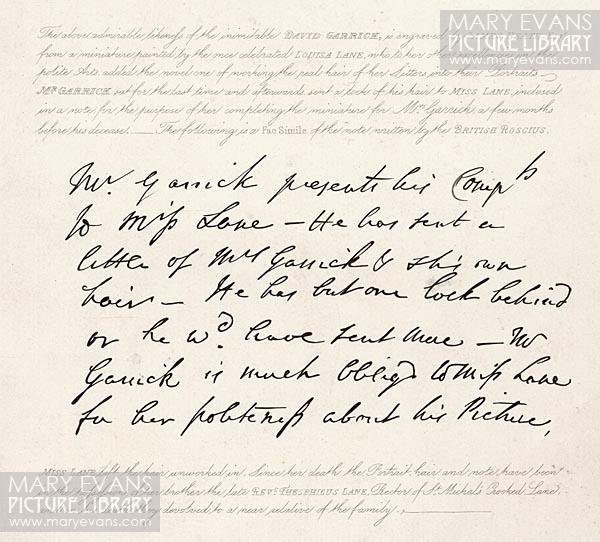 MARY EVANS
PICTURE LIBRARY
www.maryevans.com
The above admirable likeness of the inimitable DAVID GARRICK, is engraved
from a miniature painted by the once celebrated LOUISA LANE, who to her other
polite Arts, added the novel one of working the real hair of her Sitters into their Portraits.
Mr. GARRICK sat for the last time and afterwards sent a lock of his hair to MISS LANE, inclosed
in a note, for the purpose of her completing the miniature for Mrs. Garrick a few months
before his decease. — The following is a Fac Simile of the note written by the BRITISH ROSCIUS.
Mr. Garrick presents his Compts
to Miss Lane — He has sent a
little of Mrs Garrick's & his own
hair — He has but one lock behind
or he wd. have sent more — Mr
Garrick is much Oblig'd to Miss Lane
for her politeness about his Picture,
MISS LANE left the hair unworked in. Since her death the Portrait, hair and note have been
brother the late REVd. THEOPHILUS LANE, Rector of St. Michals Crooked Lane.
devolved to a near relative of the family.
MARY EVANS
PICTURE LIBRARY
www.maryevans.com
MARY EVANS
PICTURE LIBRARY
www.maryevans.com